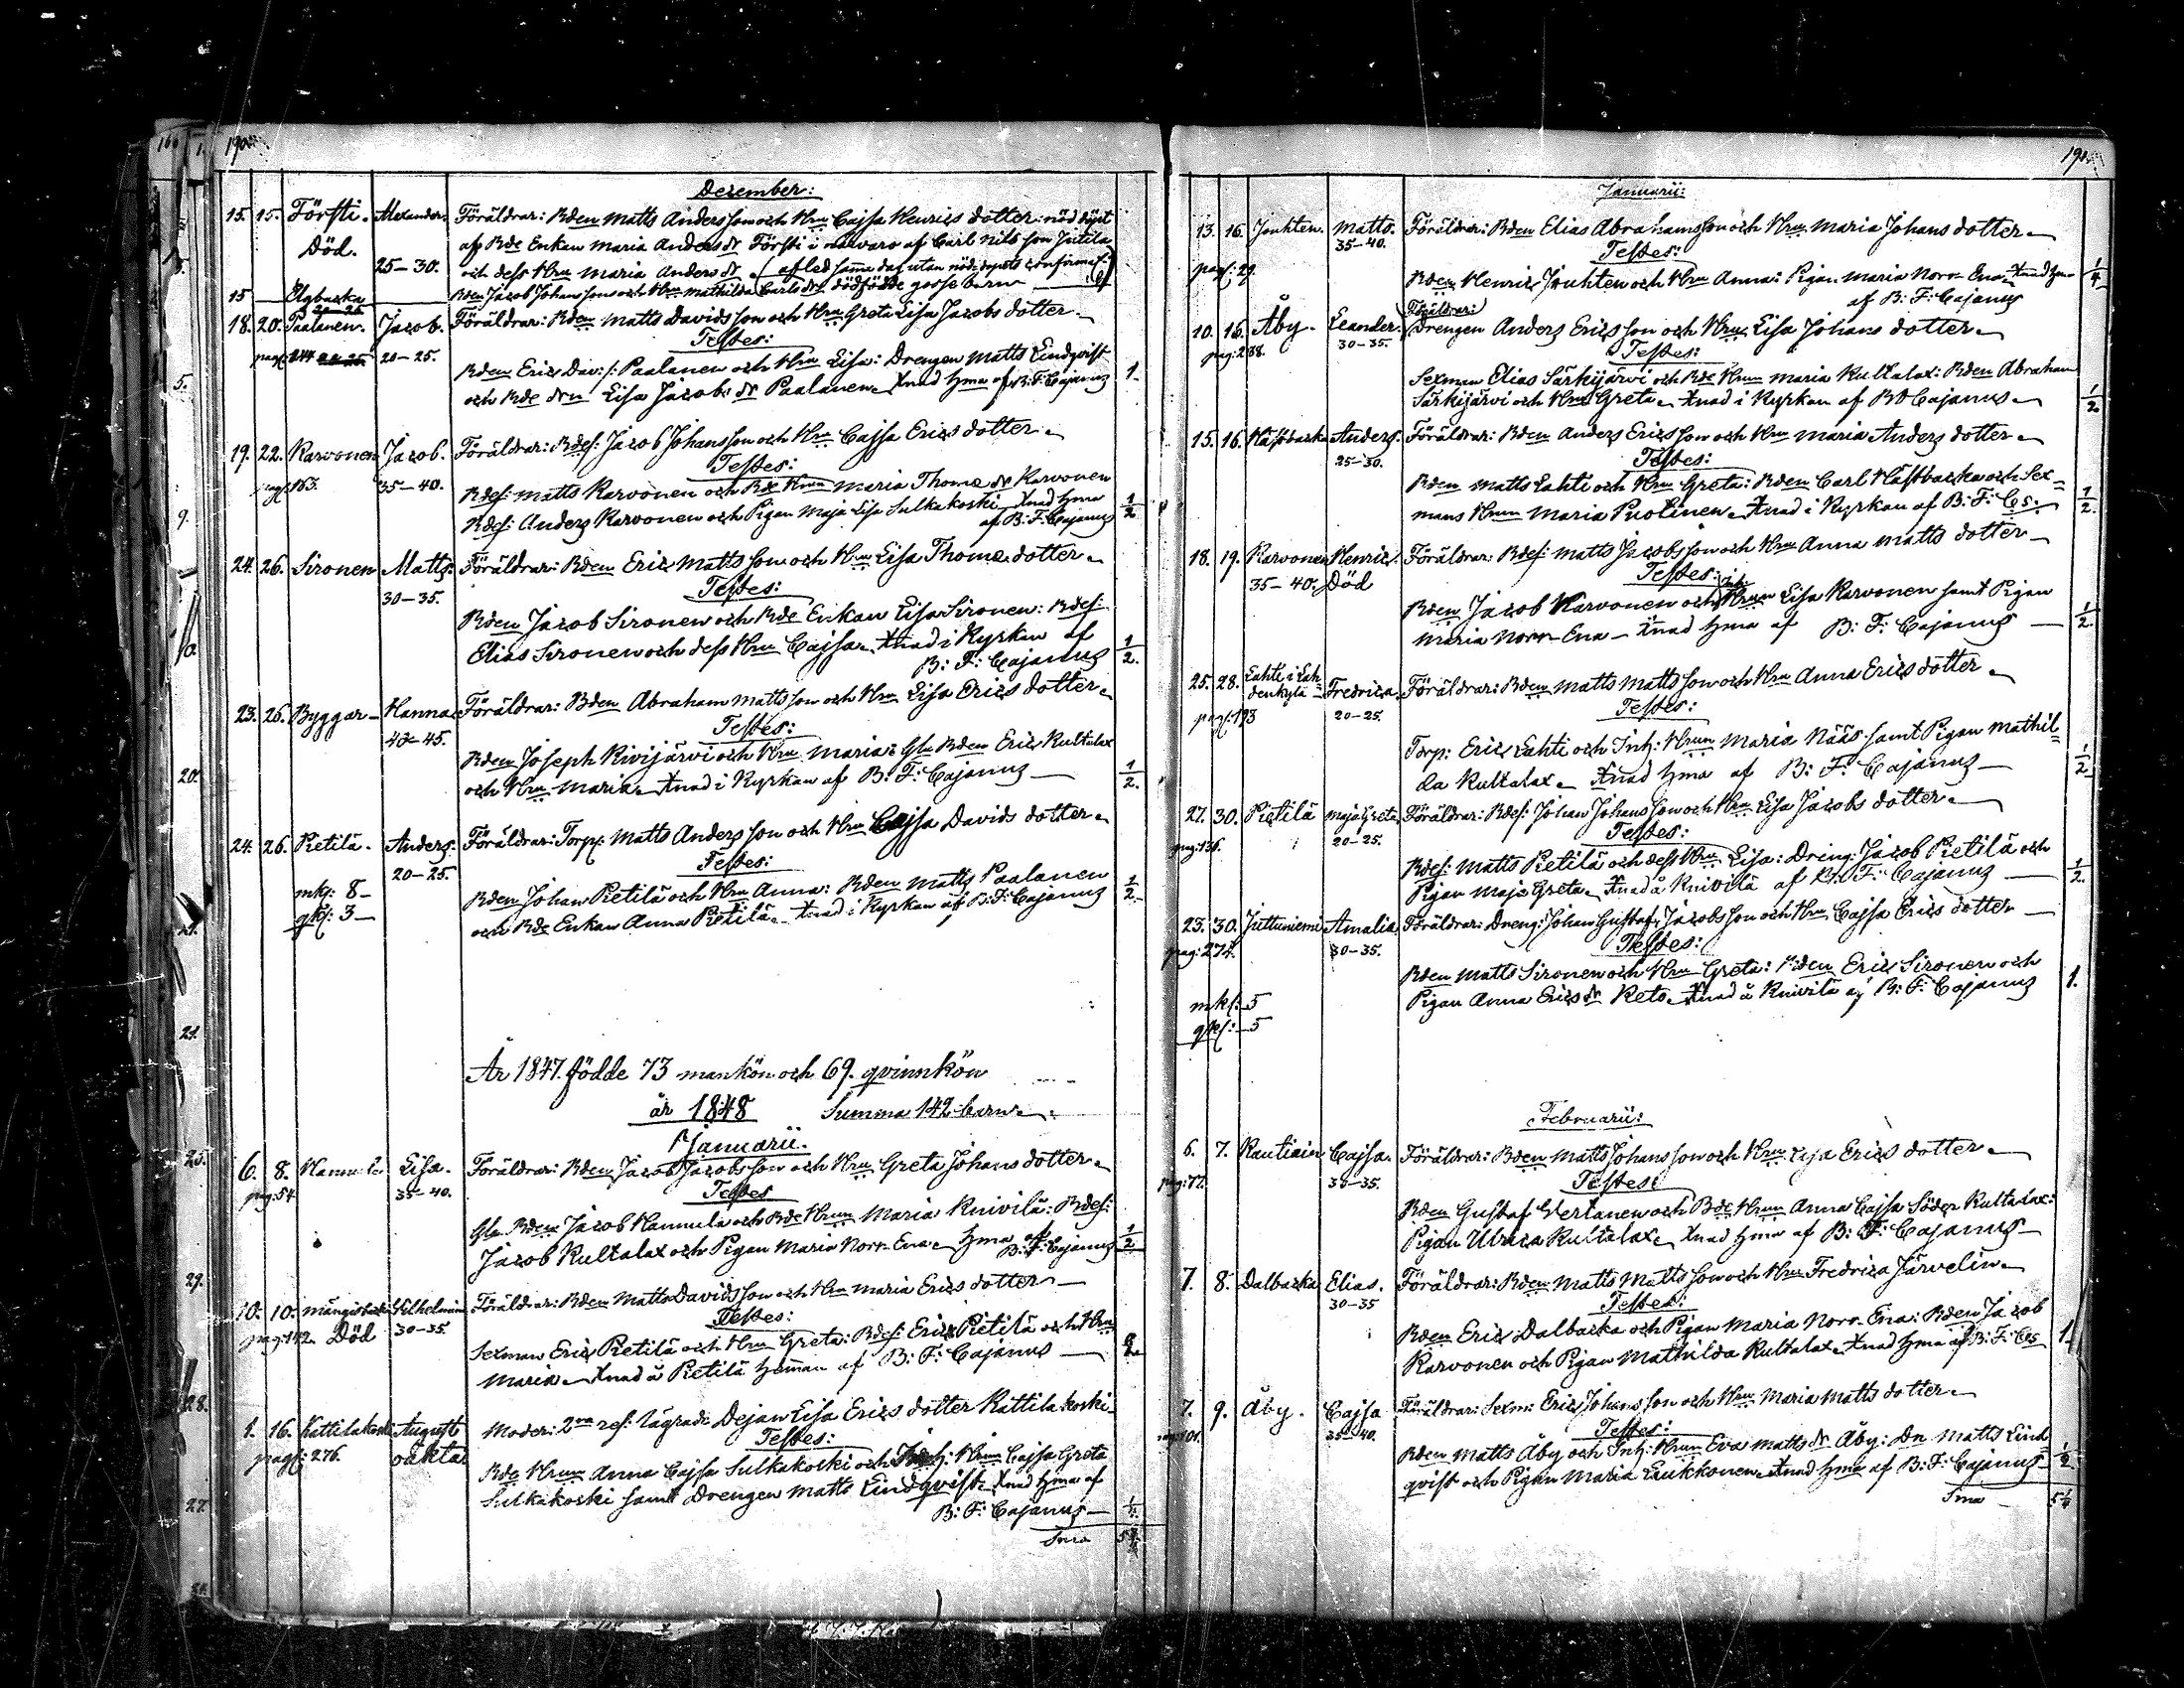 December:
15. 15. Törsti. Alexander. Föräldrar: Bden Matts Andersson och Hru Cajsa Henrics dotter: nöd döpt
Död. af Bde Enkan Maria Anders dr Törsti i närvaro af Carl Nils son Jutila
25–30. och dess Hru Maria Anders dr. (afled samma dag utan nöddopets confirma:)
15 Elgbacka Bden Jacob Johansson och Hru Mathilda Carls dr dödfödde gossebarn
18. 20. Paalanen. Jacob. Föräldrar: Bden Matts Davidsson och Hru Greta Lisa Jacobs dotter.
Testes:
pag: 244 20–25. Bden Eric Dav:s: Paalanen och Hru Lisa: Drengen Matts Lindqvist
och Bde drn Lisa Jacobs dr Paalanen. Xnad hma af B: F: Cajanus 1
19. 22. Karvonen Jacob. Föräldrar: Bdes: Jacob Johansson och Hru Cajsa Erics dotter.
Testes:
pag: 183. 35–40. Bdes: Matts Karvonen och Bde Hrun Maria Thome dr Karvonen
Bdes: Anders Karvonen och Pigan Maja Lisa Sulkakoski Xnad hma
af B: F: Cajanus 1/2
24. 26. Sironen Matts: Föräldrar: Bden Eric Mattsson och Hru Lisa Thome dotter.
30–35. Testes:
Bden Jacob Sironen och Bde Enkan Lisa Sironen: Bdes:
Elias Sironen och dess Hru Cajsa. Xnad i Kyrkan af
B: F: Cajanus 1/2.
23. 26. Byggar Hanna Föräldrar: Bden Abraham Mattsson och Hru Lisa Erics dotter.
40–45. Testes:
Bden Joseph Kivijärvi och Hru Maria: Gla Bden Eric Kultalax
och Hru Maria. Xnad i Kyrkan af B: F: Cajanus 1/2.
24. 26. Pietilä. Anders: Föräldrar: Torp: Matts Andersson och Hru Cajsa Davids dotter.
20–25. Testes:
mk: 8 Bden Johan Pietilä och Hru Anna: Bden Matts Paalanen
qk: 3 och Bde Enkan Anna Pietilä. Xnad i Kyrkan af B: F: Cajanus 1/2
År 1847. födde 73 mankön och 69. qvinnkön
år 1848 Summa 142 barn.
Januarii.
6. 8. Hannula Lisa. Föräldrar: Bden Jacob Jacobsson och Hru Greta Johans dotter.
pag: 54 35–40. Testes
Gla Bden Jacob Hannula och Bde Hrun Maria Knivilä: Bdes:
Jacob Kultalax och Pigan Maria Norr-Ena. hma af
B: F: Cajanus 1/2
10. 10. Wilhelmina Föräldrar: Bden Matts Davidsson och Hru Maria Erics dotter
pag: 142 Död 30–35. Testes:
Sexman Eric Pietilä och Hru Greta: Bdes: Eric Pietilä och Hru
Maria. Xnad å Pietilä hemman af B: F: Cajanus
1. 16. Kattilakoski August Moder: 2ra res: lägrade Dejan Lisa Erics dotter Kattilakoski
pag: 276. oäkta Testes:
Bde Hrun Anna Cajsa Sulkakoski och Hrun Cajsa Greta
Sulkakoski samt Drengen Matts Lindqvist. Xnad hma af
B: F: Cajanus
Sma
Januarii:
13. 16. Jouhten. Matts. Föräldrar: Bden Elias Abrahamsson och Hru Maria Johans dotter.
35–40. Testes:
pag: 29. Bden Henric Jouhten och Hru Anna: Pigan Maria Norr-Ena. Xnad hma
af B: F: Cajanus 1/4
Föräldrar:
10. 16. Åby. Leander. Drengen Anders Ericsson och Hru Lisa Johans dotter.
pag: 288. 30–35. Testes:
Sexman Elias Särkijärvi och Bde Hrun Maria Kultalax: Bden Abraham
Särkijärvi och Hru Greta. Xnad i Kyrkan af B F Cajanus. 1/2
15. 16. Hästbacka Anders. Föräldrar: Bden Anders Ericsson och Hru Maria Anders dotter.
25–30. Testes:
Bden Matts Lahti och Hru Greta: Bden Carl Hästbacka och Sex=
mans Hrun Maria Puolinen. Xnad i Kyrkan af B: F: Cs. 1/2.
18. 19. Karvonen Henric. Föräldrar: Bdes: Matts Jacobsson och Hru Anna Matts dotter
35–40. Död Testes:
Bden Jacob Karvonen och Inh: Hrun Lisa Karvonen samt Pigan
Maria Norr-Ena. Xnad hma af B: F: Cajanus 1/2.
25. 28. Lahti i Lah=
denkylä Fredrica. Föräldrar: Bden Matts Mattsson och Hru Anna Erics dotter.
pag: 193 20–25. Testes:
Torp: Eric Lahti och Inh: Hrun Maria Nääs samt Pigan Mathil=
da Kultalax. Xnad hma af B: F: Cajanus 1/2
27. 30. Pietilä Maja Greta. Föräldrar: Bdes: Johan Johansson och Hru Lisa Jacobs dotter.
pag: 136. 20–25. Testes:
Bdes: Matts Pietilä och dess Hru Lisa: Dreng: Jacob Pietilä och
Pigan Maja Greta. Xnad å Knivilä af B: F: Cajanus 1/2.
23. 30. Jettuniemi Amalia. Föräldrar: Dreng: Johan Gustaf Jacobsson och Hru Cajsa Erics dotter
pag: 274. 30–35. Testes:
Bden Matts Sironen och Hru Greta: Bden Eric Sironen och
mk: 5 Pigan Anna Erics dr Keto. Xnad å Knivilä af B: F: Cajanus 1.
qk: 5
Februarii:
6. 7. Rautiain Cajsa. Föräldrar: Bden Matts Johansson och Hru Lisa Erics dotter.
pag: 77. 30–35. Testes:
Bden Gustaf Wertanen och Bde Hrun Anna Cajsa Söder Kultalax:
Pigan Ulrica Kultalax. Xnad hma af B: F: Cajanus
7. 8. Dalbacka Elias. Föräldrar: Bden Matts Mattsson och Hru Fredrica Järvelin.
30–35 Testes:
Bden Eric Dalbacka och Pigan Maria Norr-Ena: Bden Jacob
Karvonen och Pigan Mathilda Kultalax. Xnad hma af B: F: Cs 1.
7. 9. Åby. Cajsa Föräldrar: Sexm: Eric Johansson och Hru Maria Matts dotter.
35–40. Testes:
Bden Matts Åby och Inh: Hrun Eva Matts dr Åby: Dn Matts Lind=
qvist och Pigan Maria Leukkonen. Xnad hma af B: F: Cajanus 1/2
Sma 5 1/4